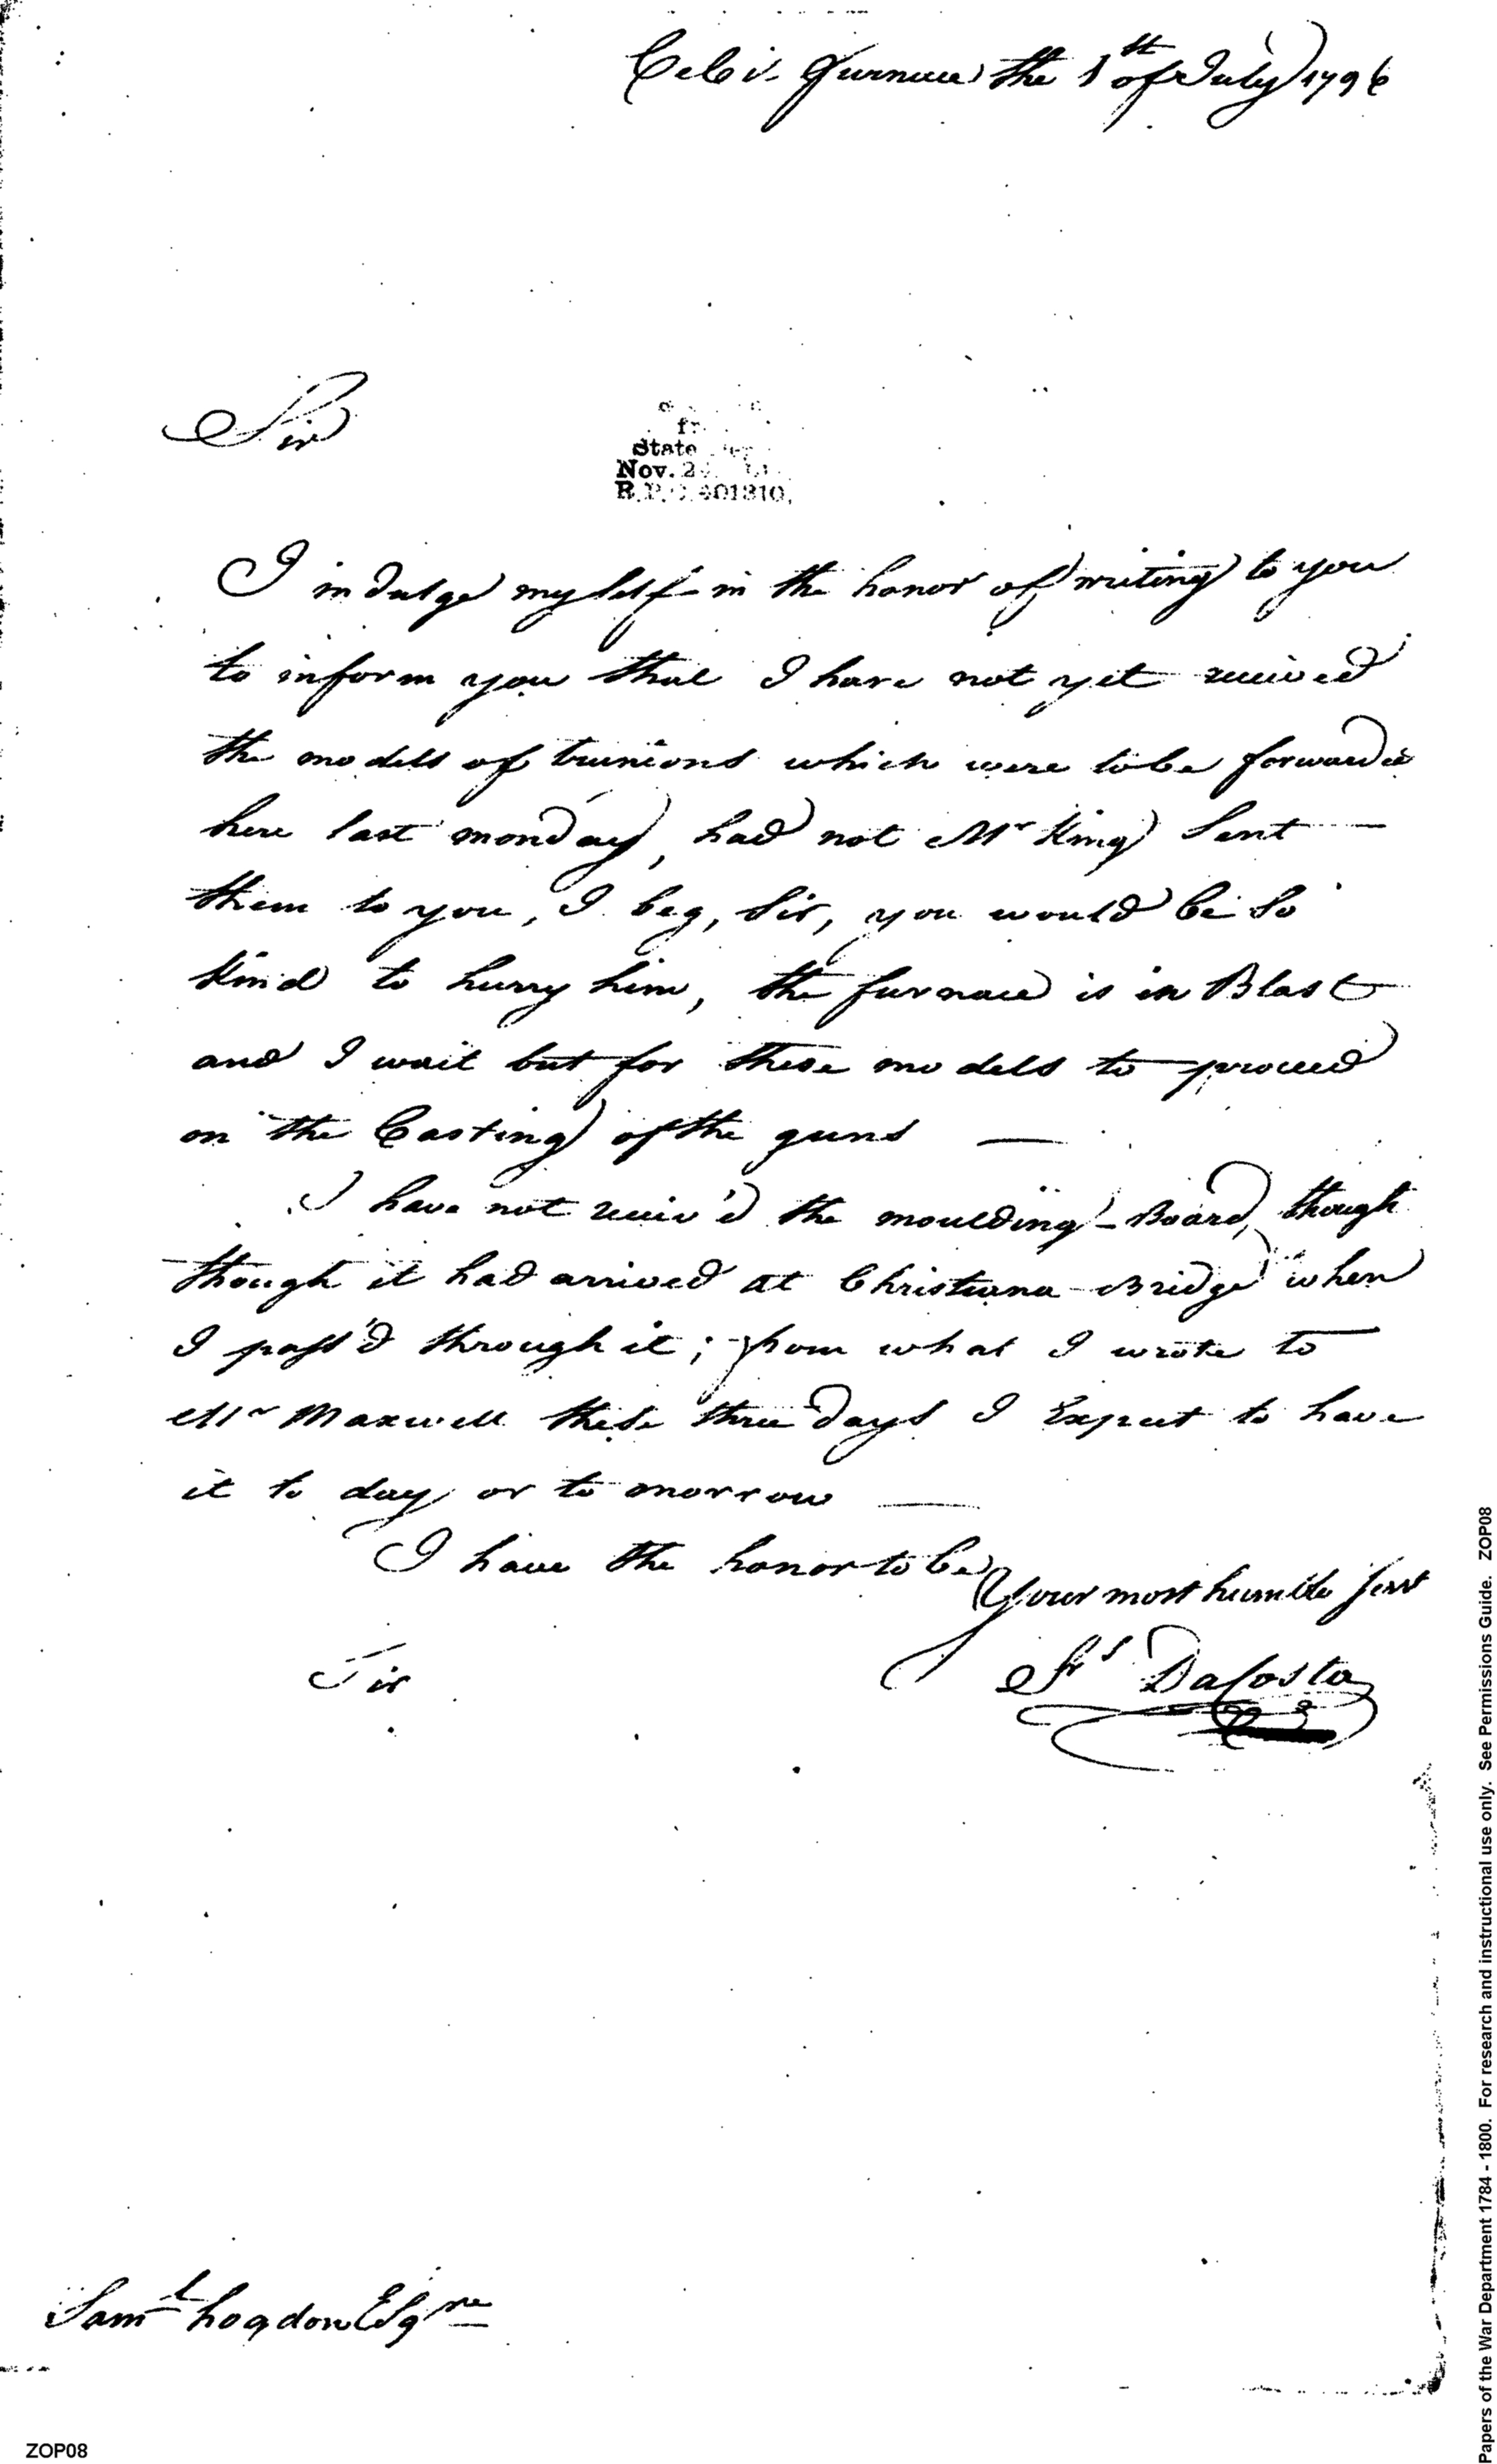 Cecil furnace the 1st of July 1796
Sir
State
Nov. 2
I indulge my self in the honor of writing to you
to inform you that I have not yet received
the models of trunions which were to be forwarded
here last monday, had not Mr King Sent
them to you, I beg, Sir, you would be So
Kind to hurry him, the furnace is in Blast
and I wait but for these models to proceed
on the Casting of the guns —
I have not receiv'd the moulding-Board, though
though it had arrived at Christiana-Bridge when
I pass'd through it; from what I wrote to
Mr Maxwell these three days I Expect to have
it to day or to morrow —
I have the honor to be
Your most humble Servt
Sir
Frs DaCosta
Saml hogdon Esqre
ZOP08
Papers of the War Department 1784 - 1800. For research and instructional use only. See Permissions Guide. ZOP08